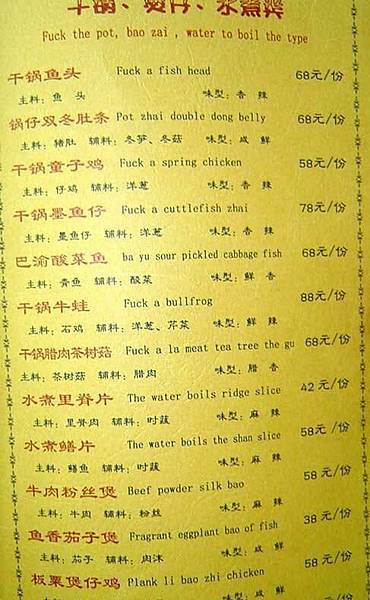 干锅、煲仔、水煮类
Fuck the pot, bao zai , water to boil the type
干锅鱼头 Fuck a fish head 68元/份
主料：鱼 头 味型：香 辣
锅仔双冬肚条 Pot zhai double dong belly 68元/份
主料：猪肚 辅料：冬笋、冬菇 味型：咸 鲜
干锅童子鸡 Fuck a spring chicken 58元/份
主料：仔鸡 辅料：洋葱 味型：香 辣
干锅墨鱼仔 Fuck a cuttlefish zhai 78元/份
主料：墨鱼仔 辅料：洋葱 味型：香 辣
巴渝酸菜鱼 ba yu sour pickled cabbage fish 68元/份
主料：青鱼 辅料：酸菜 味型：鲜 香
干锅牛蛙 Fuck a bullfrog 88元/份
主料：石鸡 辅料：洋葱、芹菜 味型：鲜 辣
干锅腊肉茶树菇 Fuck a la meat tea tree the gu 68元/份
主料：茶树菇 辅料：腊肉 味型：腊 香
水煮里脊片 The water boils ridge slice 42元/份
主料：里脊肉 辅料：时蔬 味型：麻 辣
水煮鳝片 The water boils the shan slice 58元/份
主料：鳝鱼 辅料：时蔬 味型：麻 辣
牛肉粉丝煲 Beef powder silk bao 58元/份
主料：牛肉 辅料：粉丝 味型：麻 辣
鱼香茄子煲 Fragrant eggplant bao of fish 38元/份
主料：茄子 辅料：肉沫 味型：咸 鲜
板栗煲仔鸡 Plank li bao zhi chicken 58元/份
味型：咸 鲜